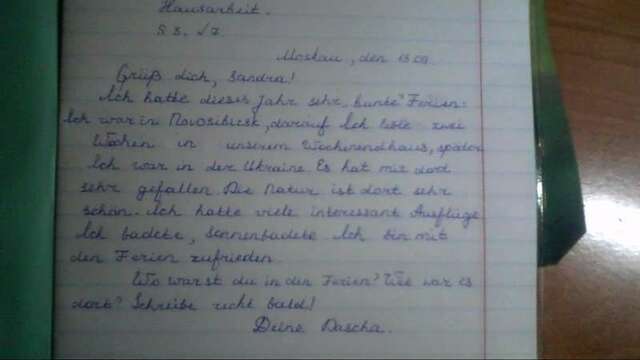 Hausarbeit.
S. 8. √7
Moskau, den 13.09.
Grüß dich, Sandra!
Ich hatte dieses Jahr sehr „bunte" Ferien:
Ich war in Novosibirsk, darauf Ich lebte zwei
Wochen in unserem Wochenendhaus, später
Ich war in der Ukraine. Es hat mir dort
sehr gefallen. Die Natur ist dort sehr
schön. Ich hatte viele interessant Ausflüge
Ich badete, sonnenbadete. Ich bin mit
den Ferien zufrieden.
Wo warst du in den Ferien? Wie war es
dort? Schreibe recht bald!
Deine Dascha.